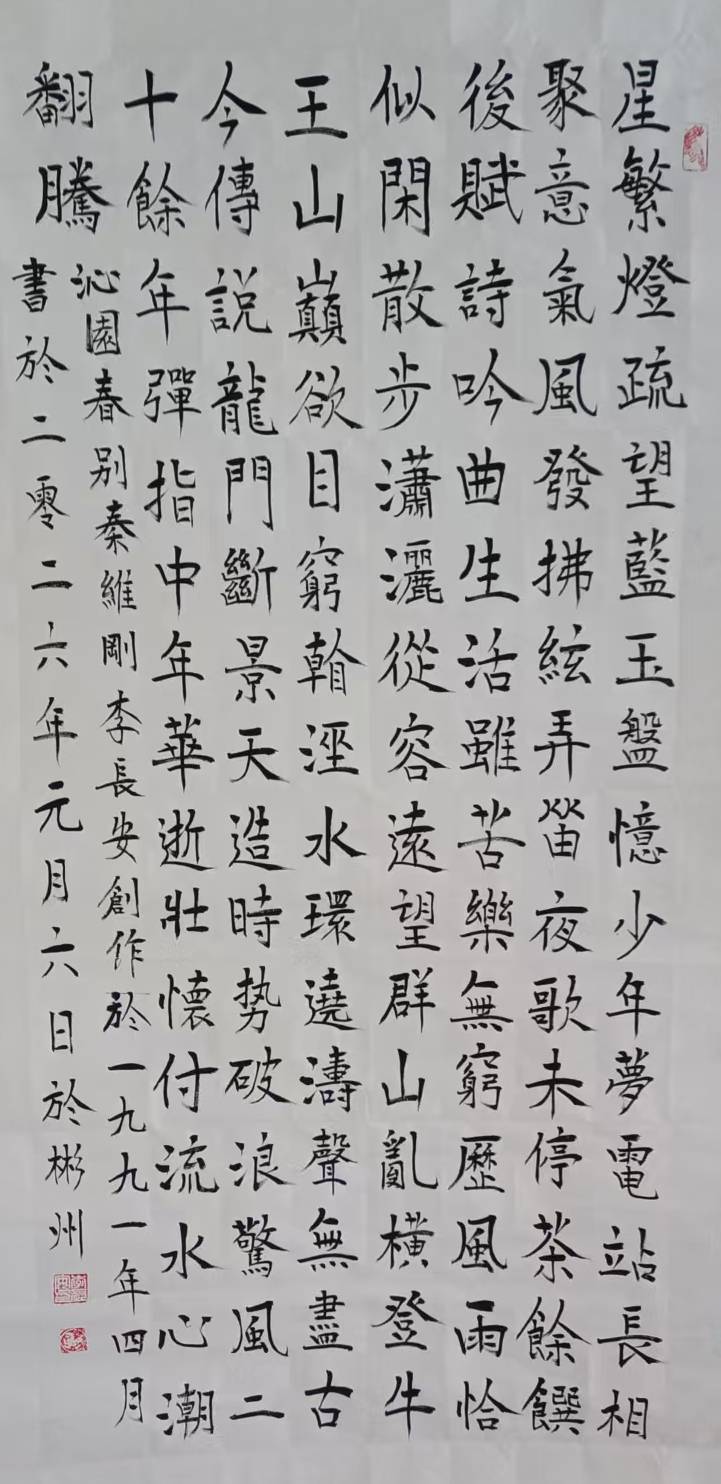 星繁燈疏望藍玉盤憶少年夢電站長相
聚意氣風發拂絃弄笛夜歌未停茶餘饌
後賦詩吟曲生活雖苦樂無窮歷風雨恰
似閑散步瀟灑從容遠望群山亂橫登牛
王山巔欲目窮翰涇水環遶濤聲無盡古
今傳説龍門斷景天造時势破浪驚風二
十餘年彈指中年華逝壯懷付流水心潮
翻騰
沁園春别秦維剛李長安創作於一九九一年四月
書於二零二六年元月六日於彬州